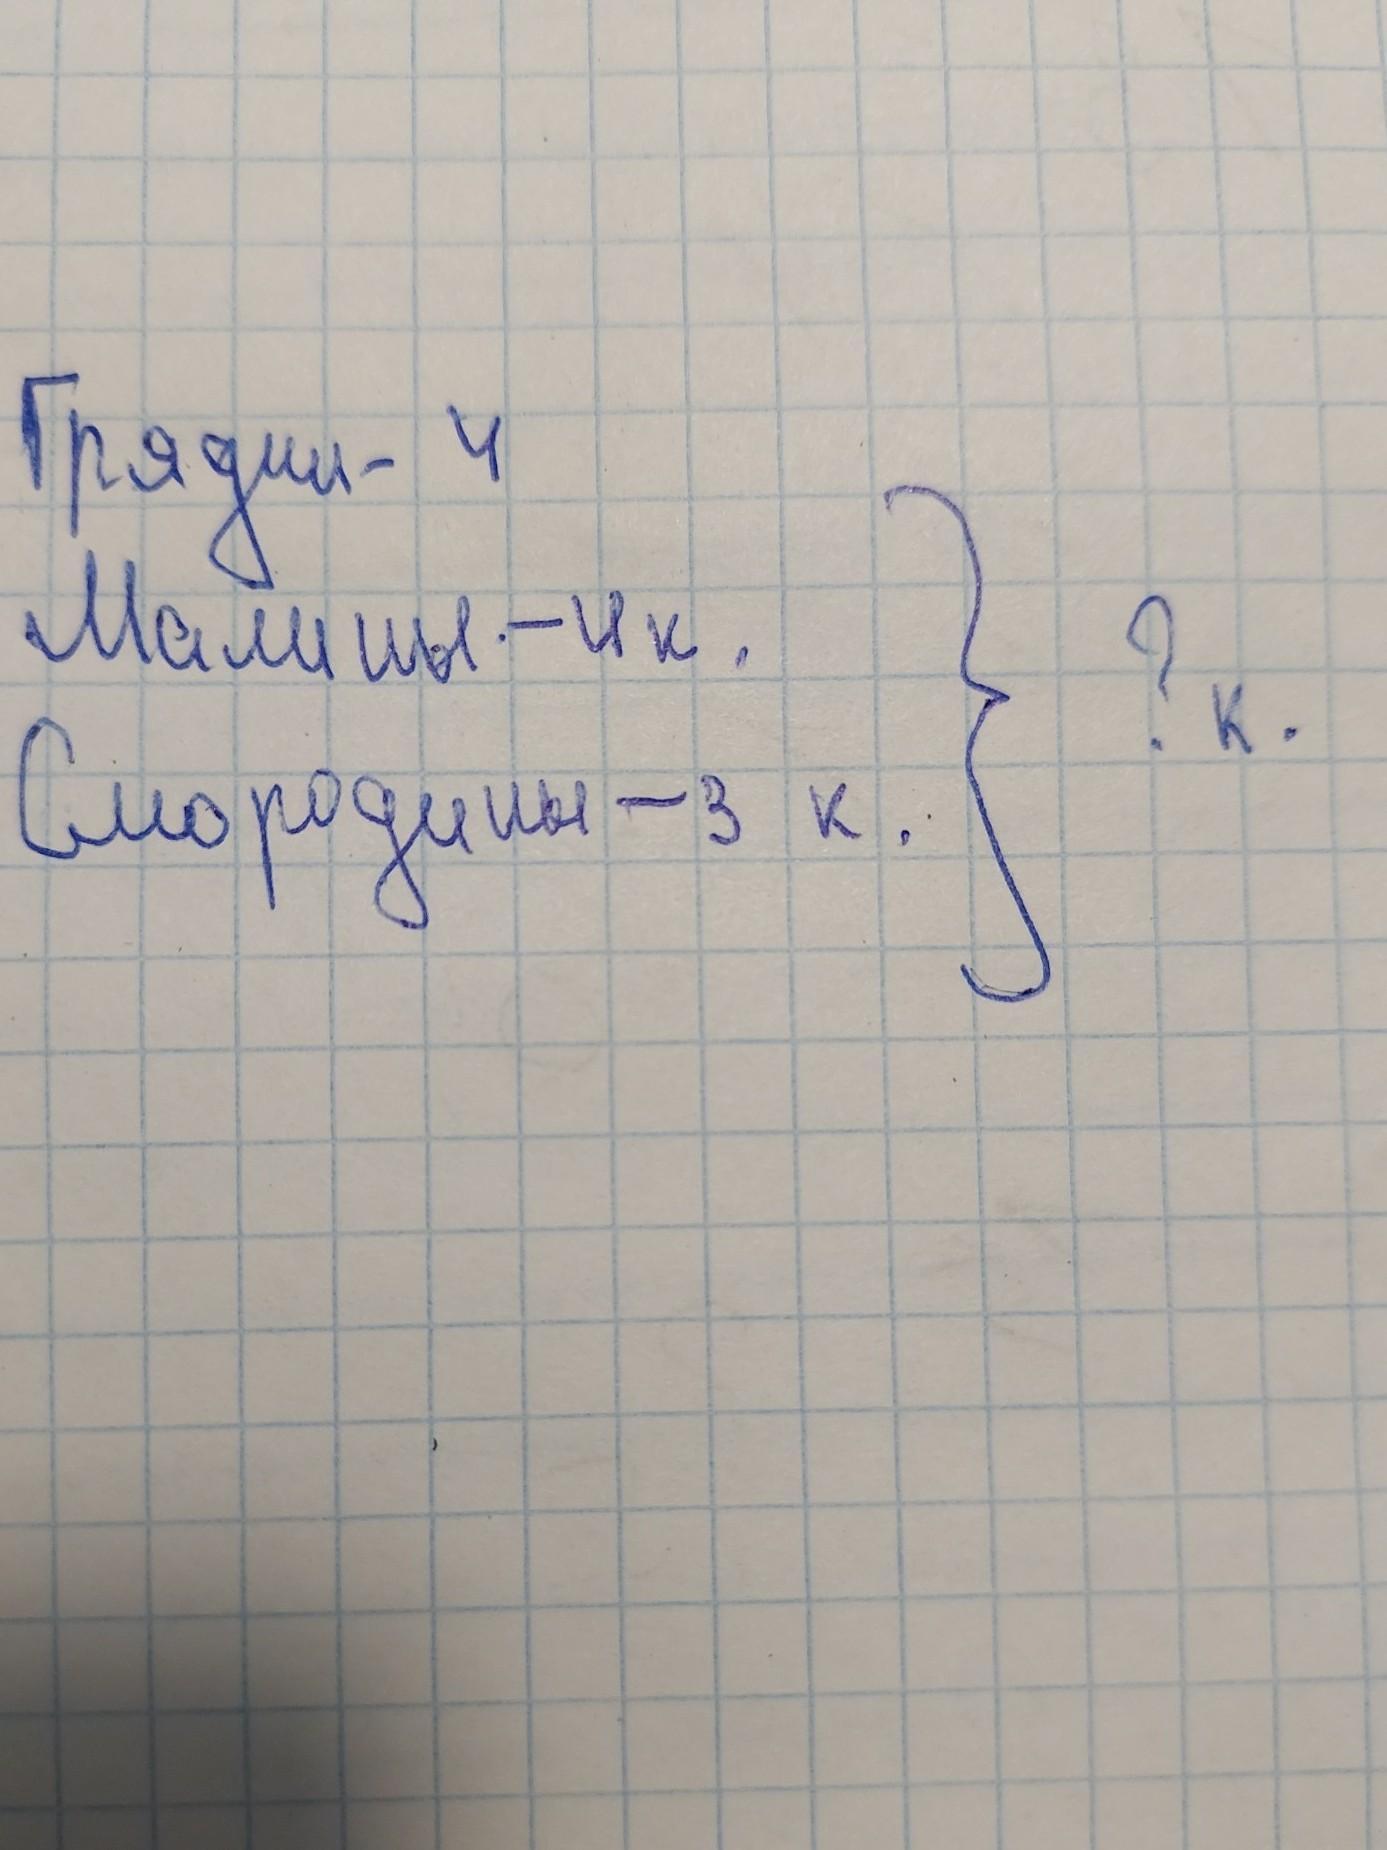 Грядки - 4
Малины - 4 к.
Смородины - 3 к.
? к.